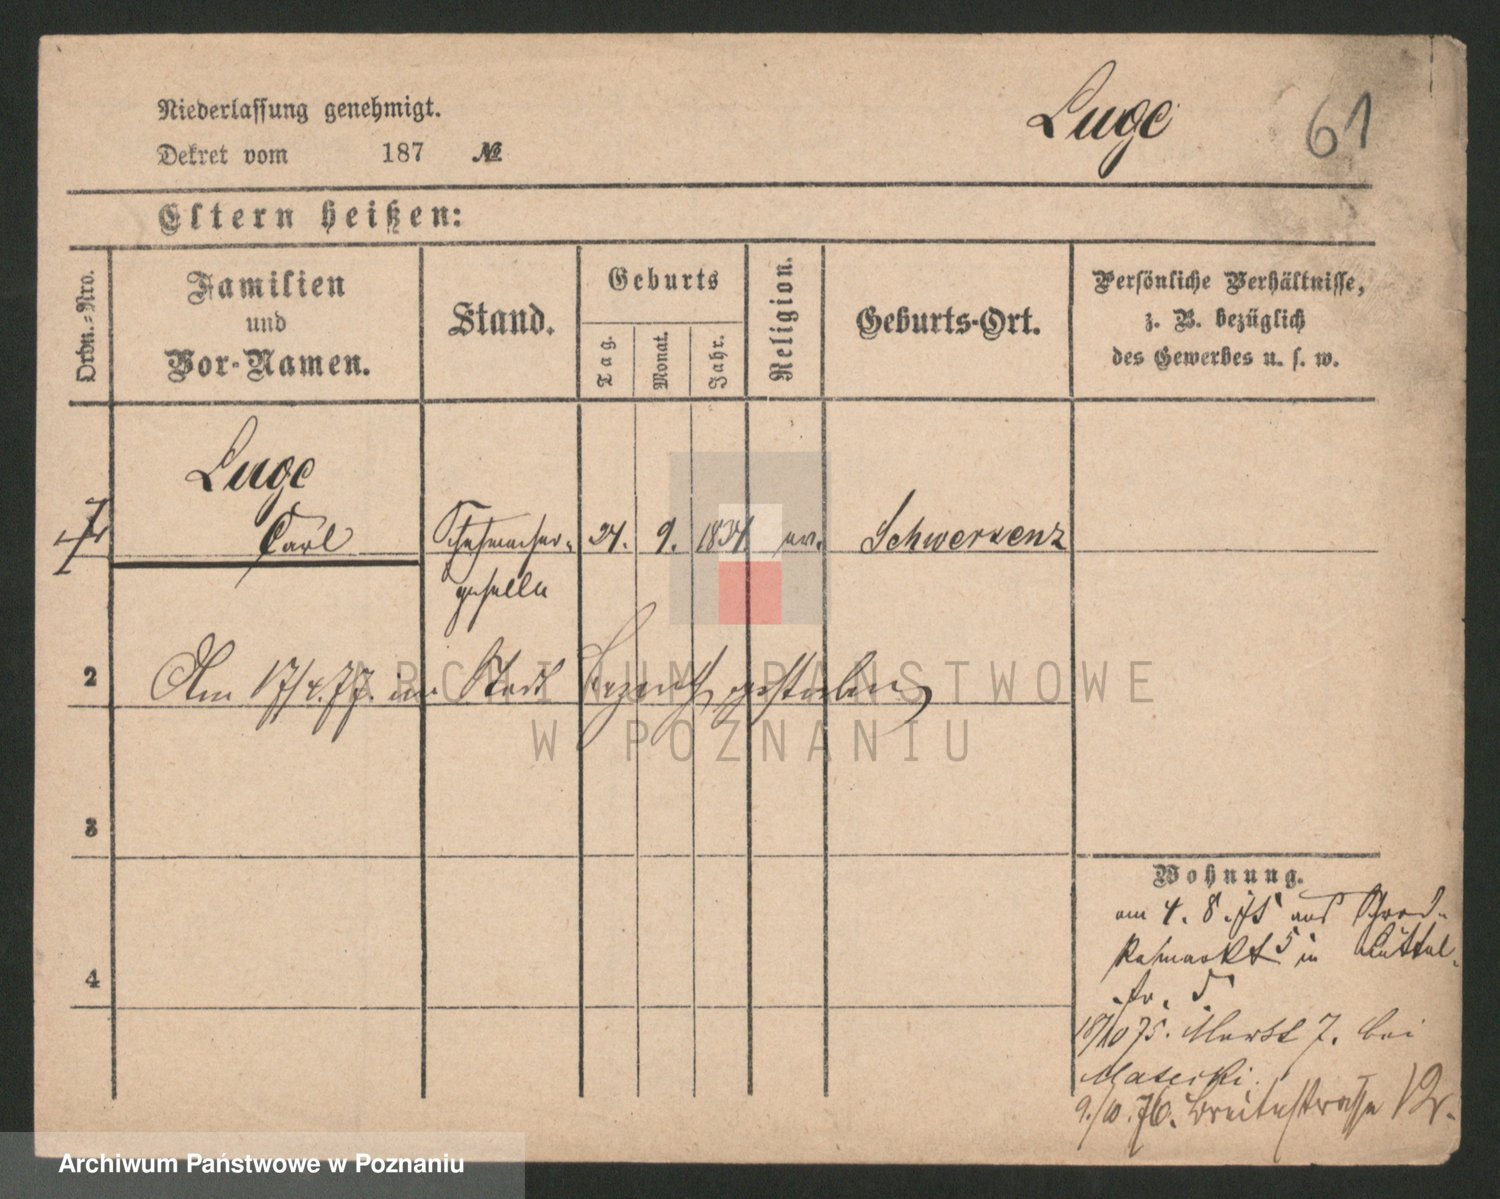 Niederlassung genehmigt.
Dekret vom 187 №
Luge
61
Eltern heißen:
Ordn.-Nro.
Familien
und
Vor-Namen.
Stand.
Geburts
Tag.
Monat.
Jahr.
Religion.
Geburts-Ort.
Persönliche Verhältnisse,
z. B. bezüglich
des Gewerbes u. s. w.
Luge
Carl
24. 9. 1834 ev. Schwersenz
geselle
2
Am 17/4.77. im Stadt gestorben
3
4
Wohnung.
am 4. 8. 75 aus
5 in
5.
18/10 75. Markt 7. bei
9./10. 76. Breitestrasse 12
ARCHIWUM PAŃSTWOWE
W POZNANIU
Archiwum Państwowe w Poznaniu